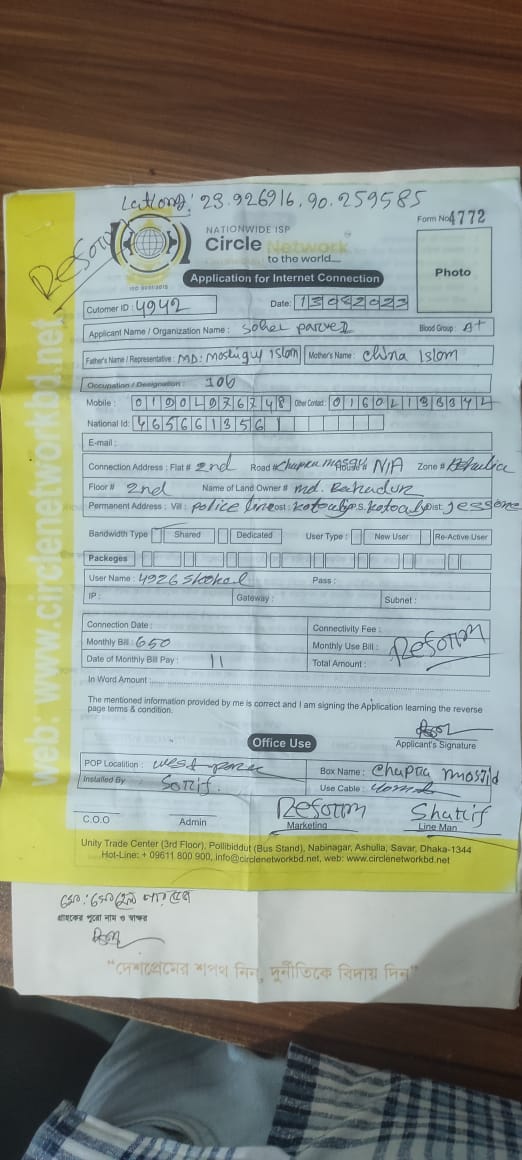 Latlong: 23.926916, 90.259585
NATIONWIDE ISP
Form No 4772
Circle Network
to the world....
ISO 9001:2015
Reform
Photo
Application for Internet Connection
Cutomer ID : 4942
Date: 13 04 2023
Applicant Name / Organization Name : Sohel parvez
Blood Group : A+
Father's Name / Representative : MD: Islam
Mother's Name : China Islam
Occupation / Designation : Job
Mobile :
Other Contact :
National Id : 4656613561
E-mail :
Connection Address : Flat# 2nd Road # House # N/A Zone # Ashulia
Floor # 2nd Name of Land Owner # md. Bahadur
Permanent Address : Vill : police line Post : kotoaly P.S. kotoaly Dist: Jessore
Bandwidth Type Shared Dedicated User Type : New User Re-Active User
Packeges
User Name : 4926 Pass :
IP : Gateway : Subnet :
Connection Date : Connectivity Fee :
Monthly Bill : 650 Monthly Use Bill :
Reform
Date of Monthly Bill Pay : 11 Total Amount :
In Word Amount :
The mentioned information provided by me is correct and I am signing the Application learning the reverse
page terms & condition.
Applicant's Signature
Office Use
POP Localition : west
Box Name : Chapra mosjid
Installed By
Use Cable :
C.O.O Admin
Reform
Marketing
Sharif
Line Man
Unity Trade Center (3rd Floor), Pollibiddut (Bus Stand), Nabinagar, Ashulia, Savar, Dhaka-1344
Hot-Line: + 09611 800 900, info@circlenetworkbd.net, web: www.circlenetworkbd.net
web: www.circlenetworkbd.net
মো: সোহেল পারভেজ
গ্রাহকের পুরো নাম ও স্বাক্ষর
“দেশপ্রেমের শপথ নিন, দুর্নীতিকে বিদায় দিন”